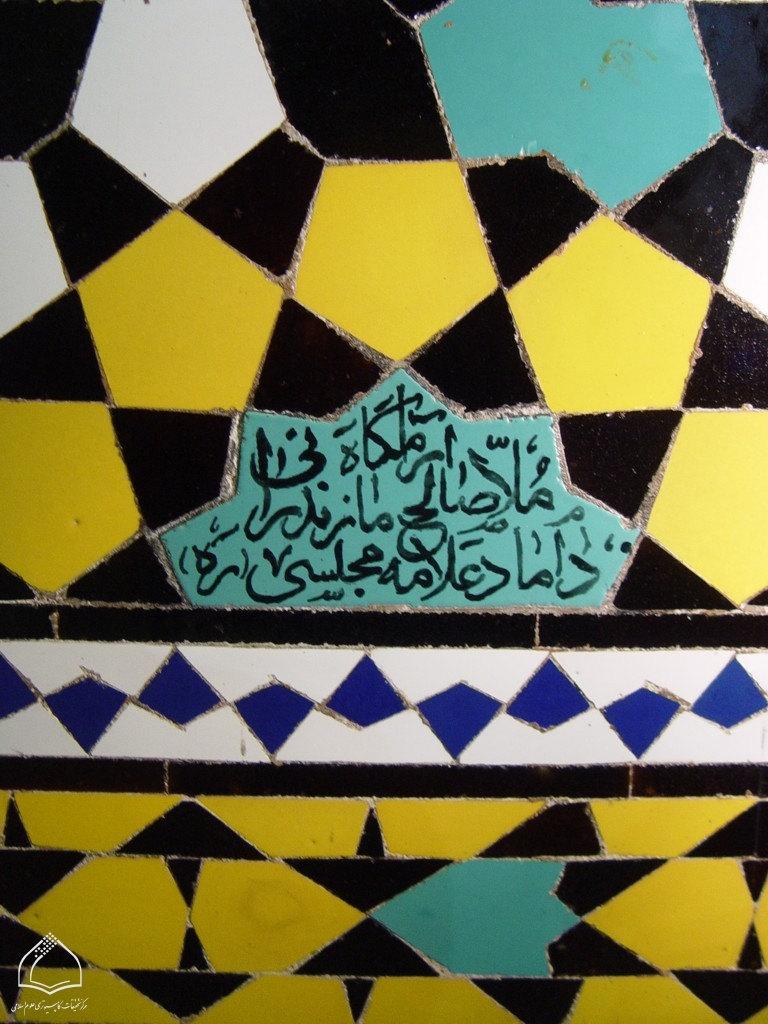 آرامگاه
ملّا صالح مازندرانی
داماد علّامه مجلسی (ره)
مرکز تحقیقات کامپیوتری علوم اسلامی